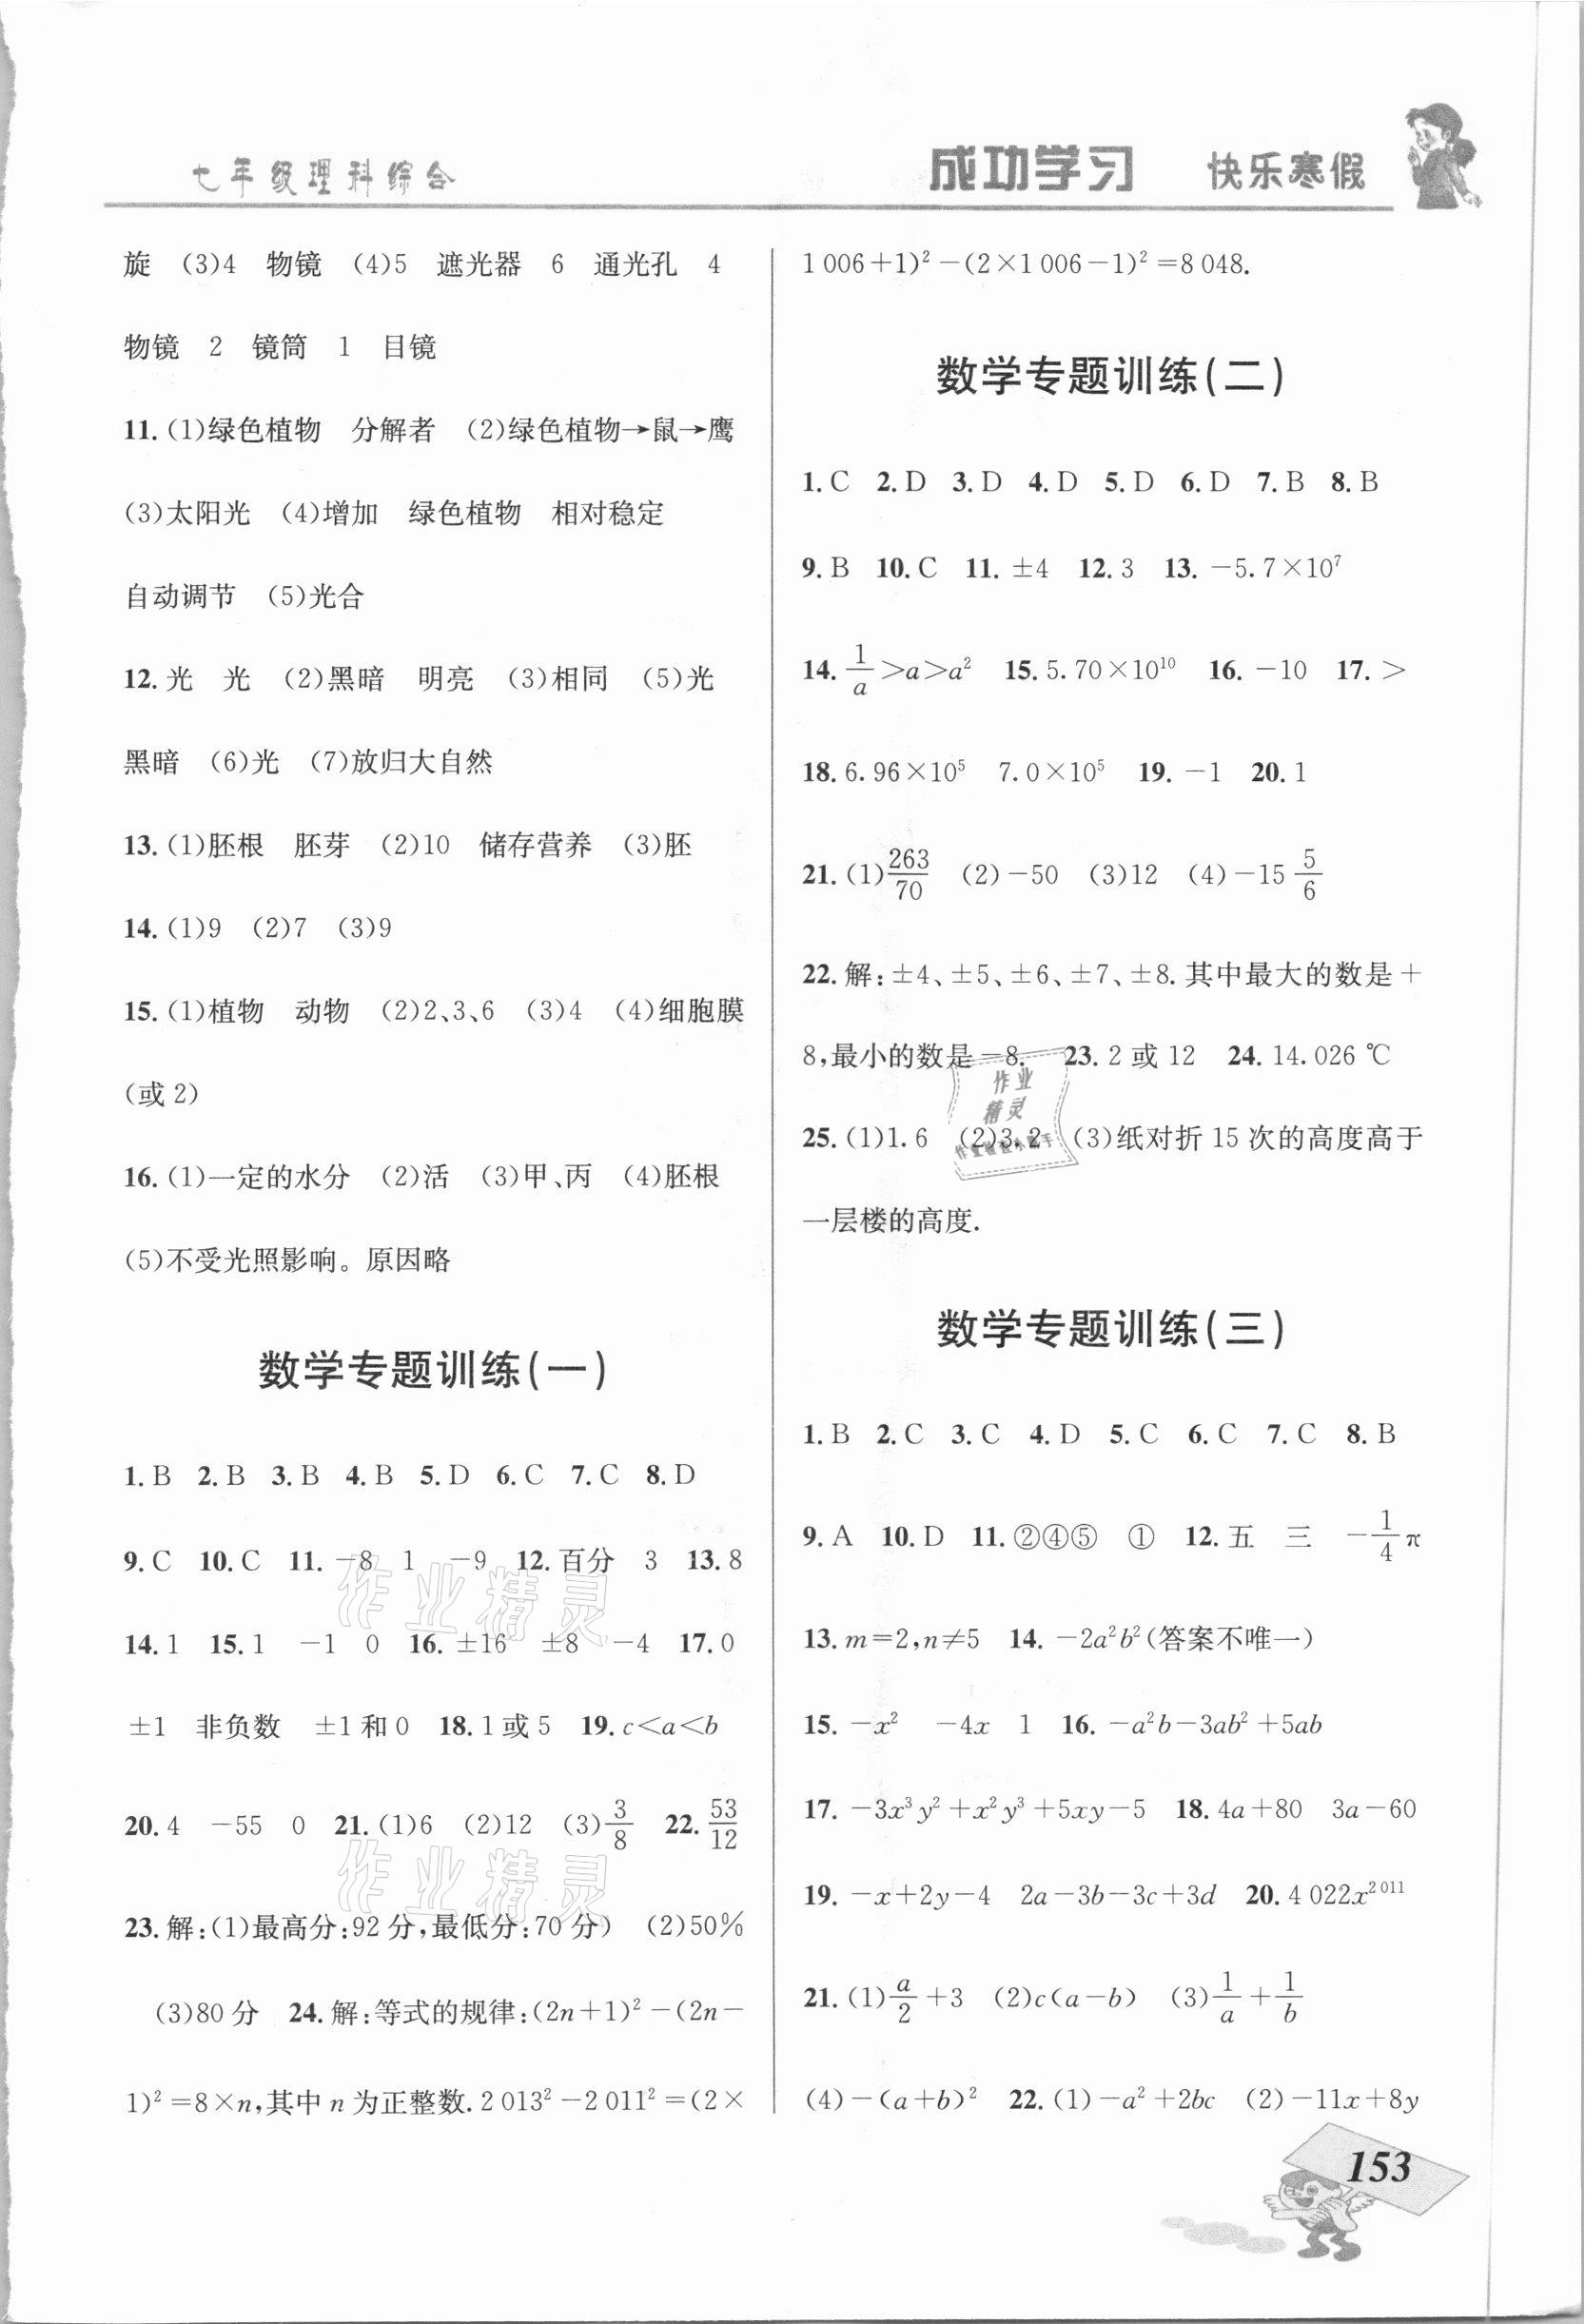 七年级理科综合
成功学习 快乐寒假
旋 (3)4 物镜 (4)5 遮光器 6 通光孔 4
物镜 2 镜筒 1 目镜
11.(1)绿色植物 分解者 (2)绿色植物→鼠→鹰
(3)太阳光 (4)增加 绿色植物 相对稳定
自动调节 (5)光合
12.光 光 (2)黑暗 明亮 (3)相同 (5)光
黑暗 (6)光 (7)放归大自然
13.(1)胚根 胚芽 (2)10 储存营养 (3)胚
14.(1)9 (2)7 (3)9
15.(1)植物 动物 (2)2、3、6 (3)4 (4)细胞膜
(或2)
16.(1)一定的水分 (2)活 (3)甲、丙 (4)胚根
(5)不受光照影响。原因略
数学专题训练(一)
1.B 2.B 3.B 4.B 5.D 6.C 7.C 8.D
9.C 10.C 11.-8 1 -9 12.百分 3 13.8
14.1 15.1 -1 0 16.±16 ±8 -4 17.0
±1 非负数 ±1和0 18.1或5 19.c<a<b
20.4 -55 0 21.(1)6 (2)12 (3)3/8 22.53/12
23.解:(1)最高分:92分,最低分:70分) (2)50%
(3)80分 24.解:等式的规律:(2n+1)²-(2n-
1)²=8×n,其中n为正整数.2 013²-2 011²=(2×
1 006+1)²-(2×1 006-1)²=8 048.
数学专题训练(二)
1.C 2.D 3.D 4.D 5.D 6.D 7.B 8.B
9.B 10.C 11.±4 12.3 13.-5.7×10⁷
14.1/a>a>a² 15.5.70×10¹⁰ 16.-10 17.>
18.6.96×10⁵ 7.0×10⁵ 19.-1 20.1
21.(1)263/70 (2)-50 (3)12 (4)-15 5/6
22.解:±4、±5、±6、±7、±8.其中最大的数是+
8,最小的数是-8. 23.2或12 24.14.026 ℃
25.(1)1.6 (2)3.2 (3)纸对折15次的高度高于
一层楼的高度.
数学专题训练(三)
1.B 2.C 3.C 4.D 5.C 6.C 7.C 8.B
9.A 10.D 11.②④⑤ ① 12.五 三 -1/4π
13.m=2,n≠5 14.-2a²b²(答案不唯一)
15.-x² -4x 1 16.-a²b-3ab²+5ab
17.-3x³y²+x²y³+5xy-5 18.4a+80 3a-60
19.-x+2y-4 2a-3b-3c+3d 20.4 022x²⁰¹¹
21.(1)a/2+3 (2)c(a-b) (3)1/a+1/b
(4)-(a+b)² 22.(1)-a²+2bc (2)-11x+8y
153
作业精灵
作业精灵
作业
精灵